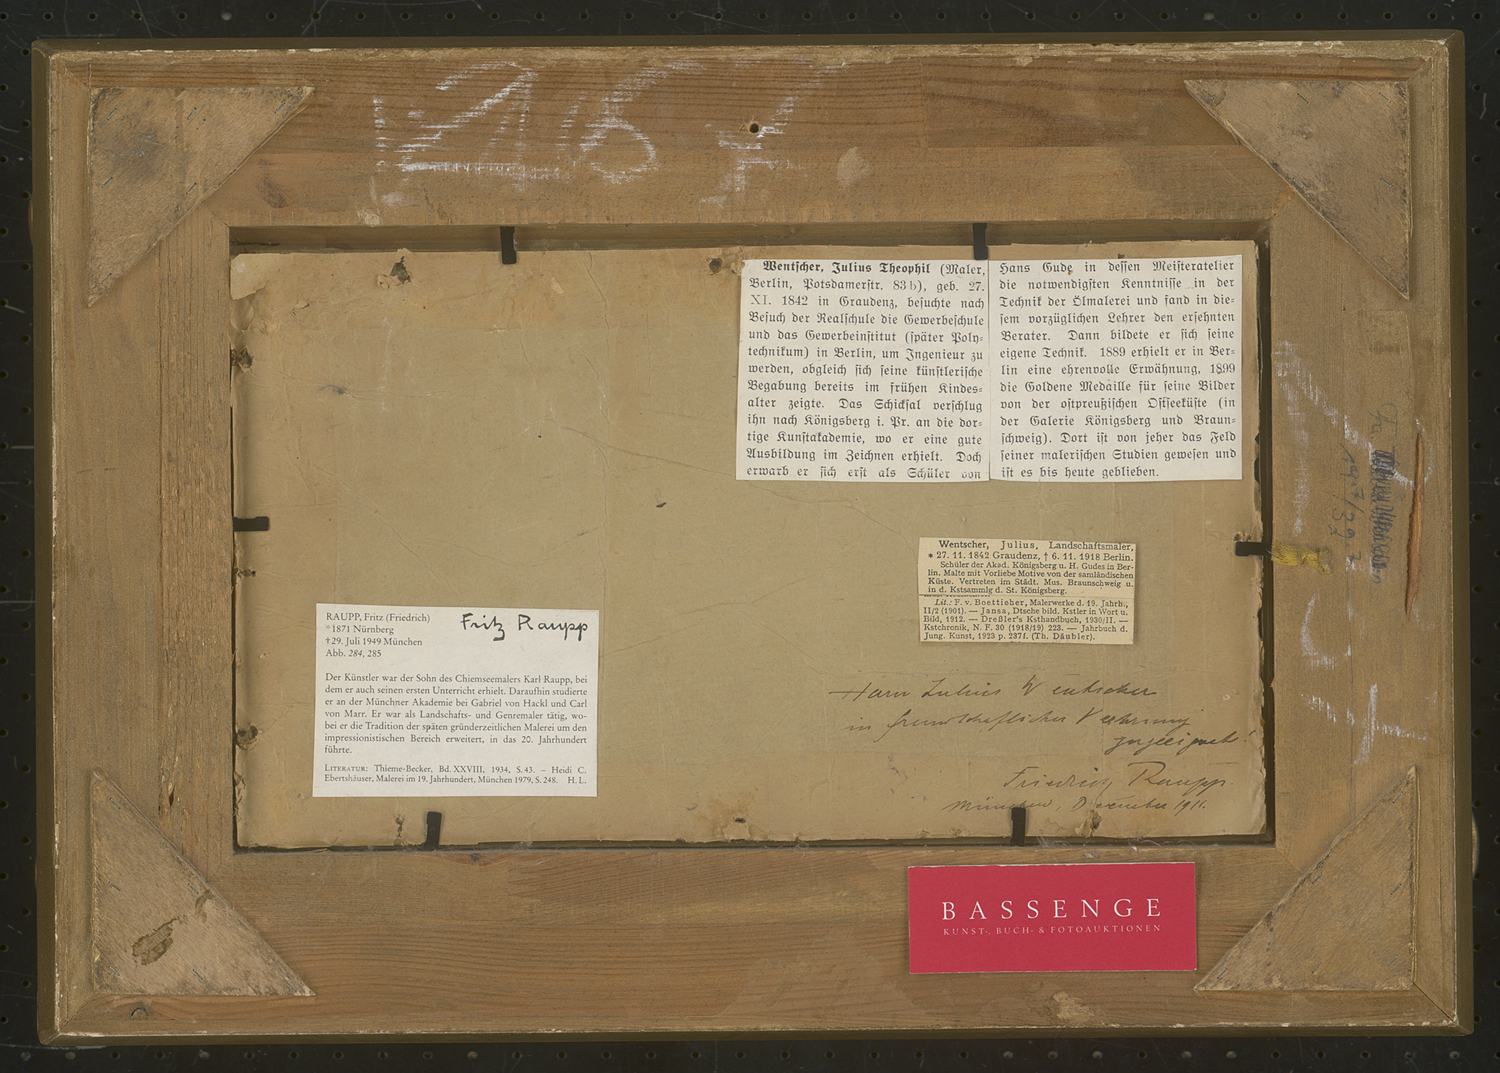 216 7
Wentscher, Julius Theophil (Maler,
Berlin, Potsdamerstr. 83b), geb. 27.
XI. 1842 in Graudenz, besuchte nach
Besuch der Realschule die Gewerbeschule
und das Gewerbeinstitut (später Poly-
technikum) in Berlin, um Ingenieur zu
werden, obgleich sich seine künstlerische
Begabung bereits im frühen Kindes-
alter zeigte. Das Schicksal verschlug
ihn nach Königsberg i. Pr. an die dor-
tige Kunstakademie, wo er eine gute
Ausbildung im Zeichnen erhielt. Doch
erwarb er sich erst als Schüler von
Hans Gude in dessen Meisteratelier
die notwendigsten Kenntnisse in der
Technik der Ölmalerei und fand in die-
sem vorzüglichen Lehrer den ersehnten
Berater. Dann bildete er sich seine
eigene Technik. 1889 erhielt er in Ber-
lin eine ehrenvolle Erwähnung, 1899
die Goldene Medaille für seine Bilder
von der ostpreußischen Ostseeküste (in
der Galerie Königsberg und Braun-
schweig). Dort ist von jeher das Feld
seiner malerischen Studien gewesen und
ist es bis heute geblieben.
Wentscher, Julius, Landschaftsmaler,
* 27. 11. 1842 Graudenz, † 6. 11. 1918 Berlin.
Schüler der Akad. Königsberg u. H. Gudes in Ber-
lin. Malte mit Vorliebe Motive von der samländischen
Küste. Vertreten im Städt. Mus. Braunschweig u.
in d. Kstsammlg d. St. Königsberg.
Lit.: F. v. Boetticher, Malerwerke d. 19. Jahrh.,
II/2 (1901). — Jansa, Dtsche bild. Kstler in Wort u.
Bild, 1912. — Dreßler's Ksthandbuch, 1930/II. —
Kstchronik, N. F. 30 (1918/19) 223. — Jahrbuch d.
Jung. Kunst, 1923 p. 237f. (Th. Däubler).
RAUPP, Fritz (Friedrich)
*1871 Nürnberg
†29. Juli 1949 München
Abb. 284, 285
Fritz Raupp
Der Künstler war der Sohn des Chiemseemalers Karl Raupp, bei
dem er auch seinen ersten Unterricht erhielt. Daraufhin studierte
er an der Münchner Akademie bei Gabriel von Hackl und Carl
von Marr. Er war als Landschafts- und Genremaler tätig, wo-
bei er die Tradition der späten gründerzeitlichen Malerei um den
impressionistischen Bereich erweitert, in das 20. Jahrhundert
führte.
LITERATUR: Thieme-Becker, Bd. XXVIII, 1934, S. 43. – Heidi C.
Ebertshäuser, Malerei im 19. Jahrhundert, München 1979, S. 248. H. L.
Herrn Julius Wentscher
in freundschaftlicher Verehrung
zugeeignet!
Friedrich Raupp.
München, Dezember 1911.
BASSENGE
KUNST-, BUCH- & FOTOAUKTIONEN